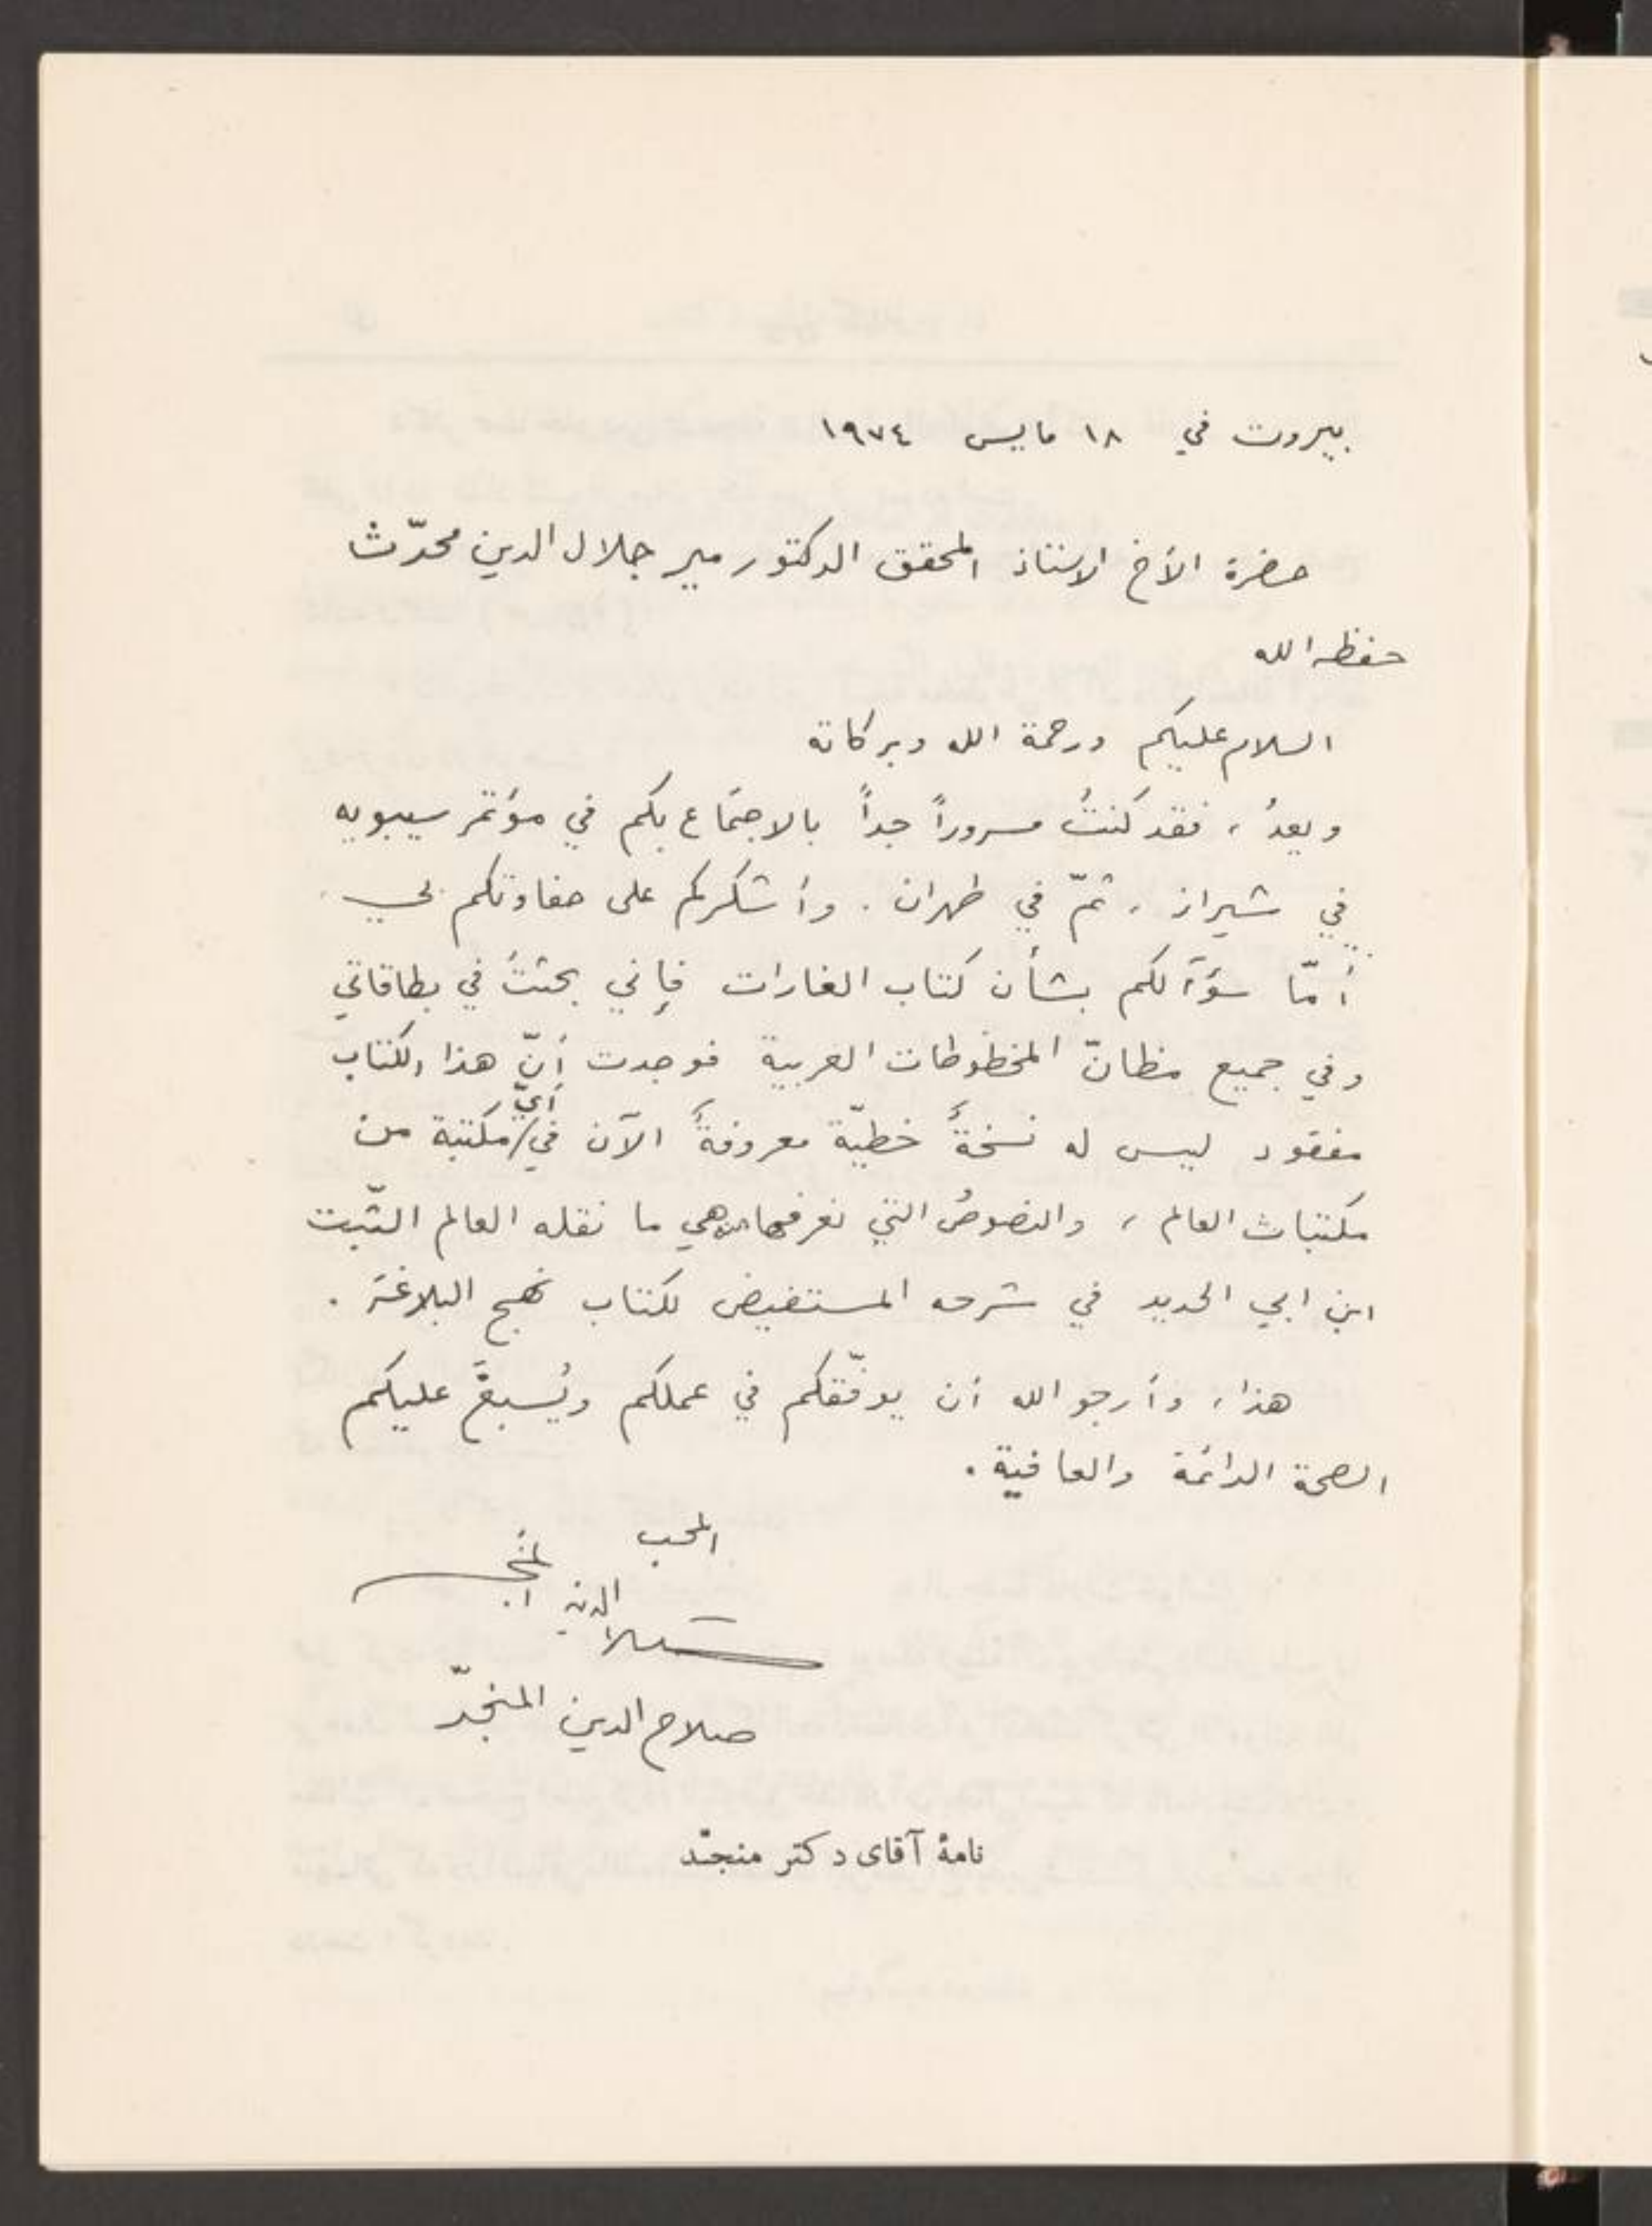 بيروت في ١٨ مايس ١٩٧٤
حضرة الأخ الاستاذ المحقق الدكتور مير جلال الدين محدّث
حفظه الله
السلام عليكم ورحمة الله وبركاته
وبعدُ، فقد كنتُ مسروراً جداً بالاجتماع بكم في مؤتمر سيبويه
في شيراز، ثمّ في طهران. وأشكركم على حفاوتكم بي.
أمّا سؤآلكم بشأن كتاب الغارات فإني بحثتُ في بطاقاتي
وفي جميع مظانّ المخطوطات العربية فوجدت أنّ هذا الكتاب
مفقود ليس له نسخةٌ خطيّة معروفةٌ الآن في أيّ مكتبة من
مكتبات العالم، والنصوصُ التي نعرفها هي ما نقله العالم الثّبت
ابن ابي الحديد في شرحه المستفيض لكتاب نهج البلاغة.
هذا، وأرجو الله أن يوفّقكم في عملكم ويُسبغَ عليكم
الصحة الدائمة والعافية.
المحب
صلاح الدين المنجد
صلاح الدين المنجّد
نامهٔ آقای دکتر منجّد